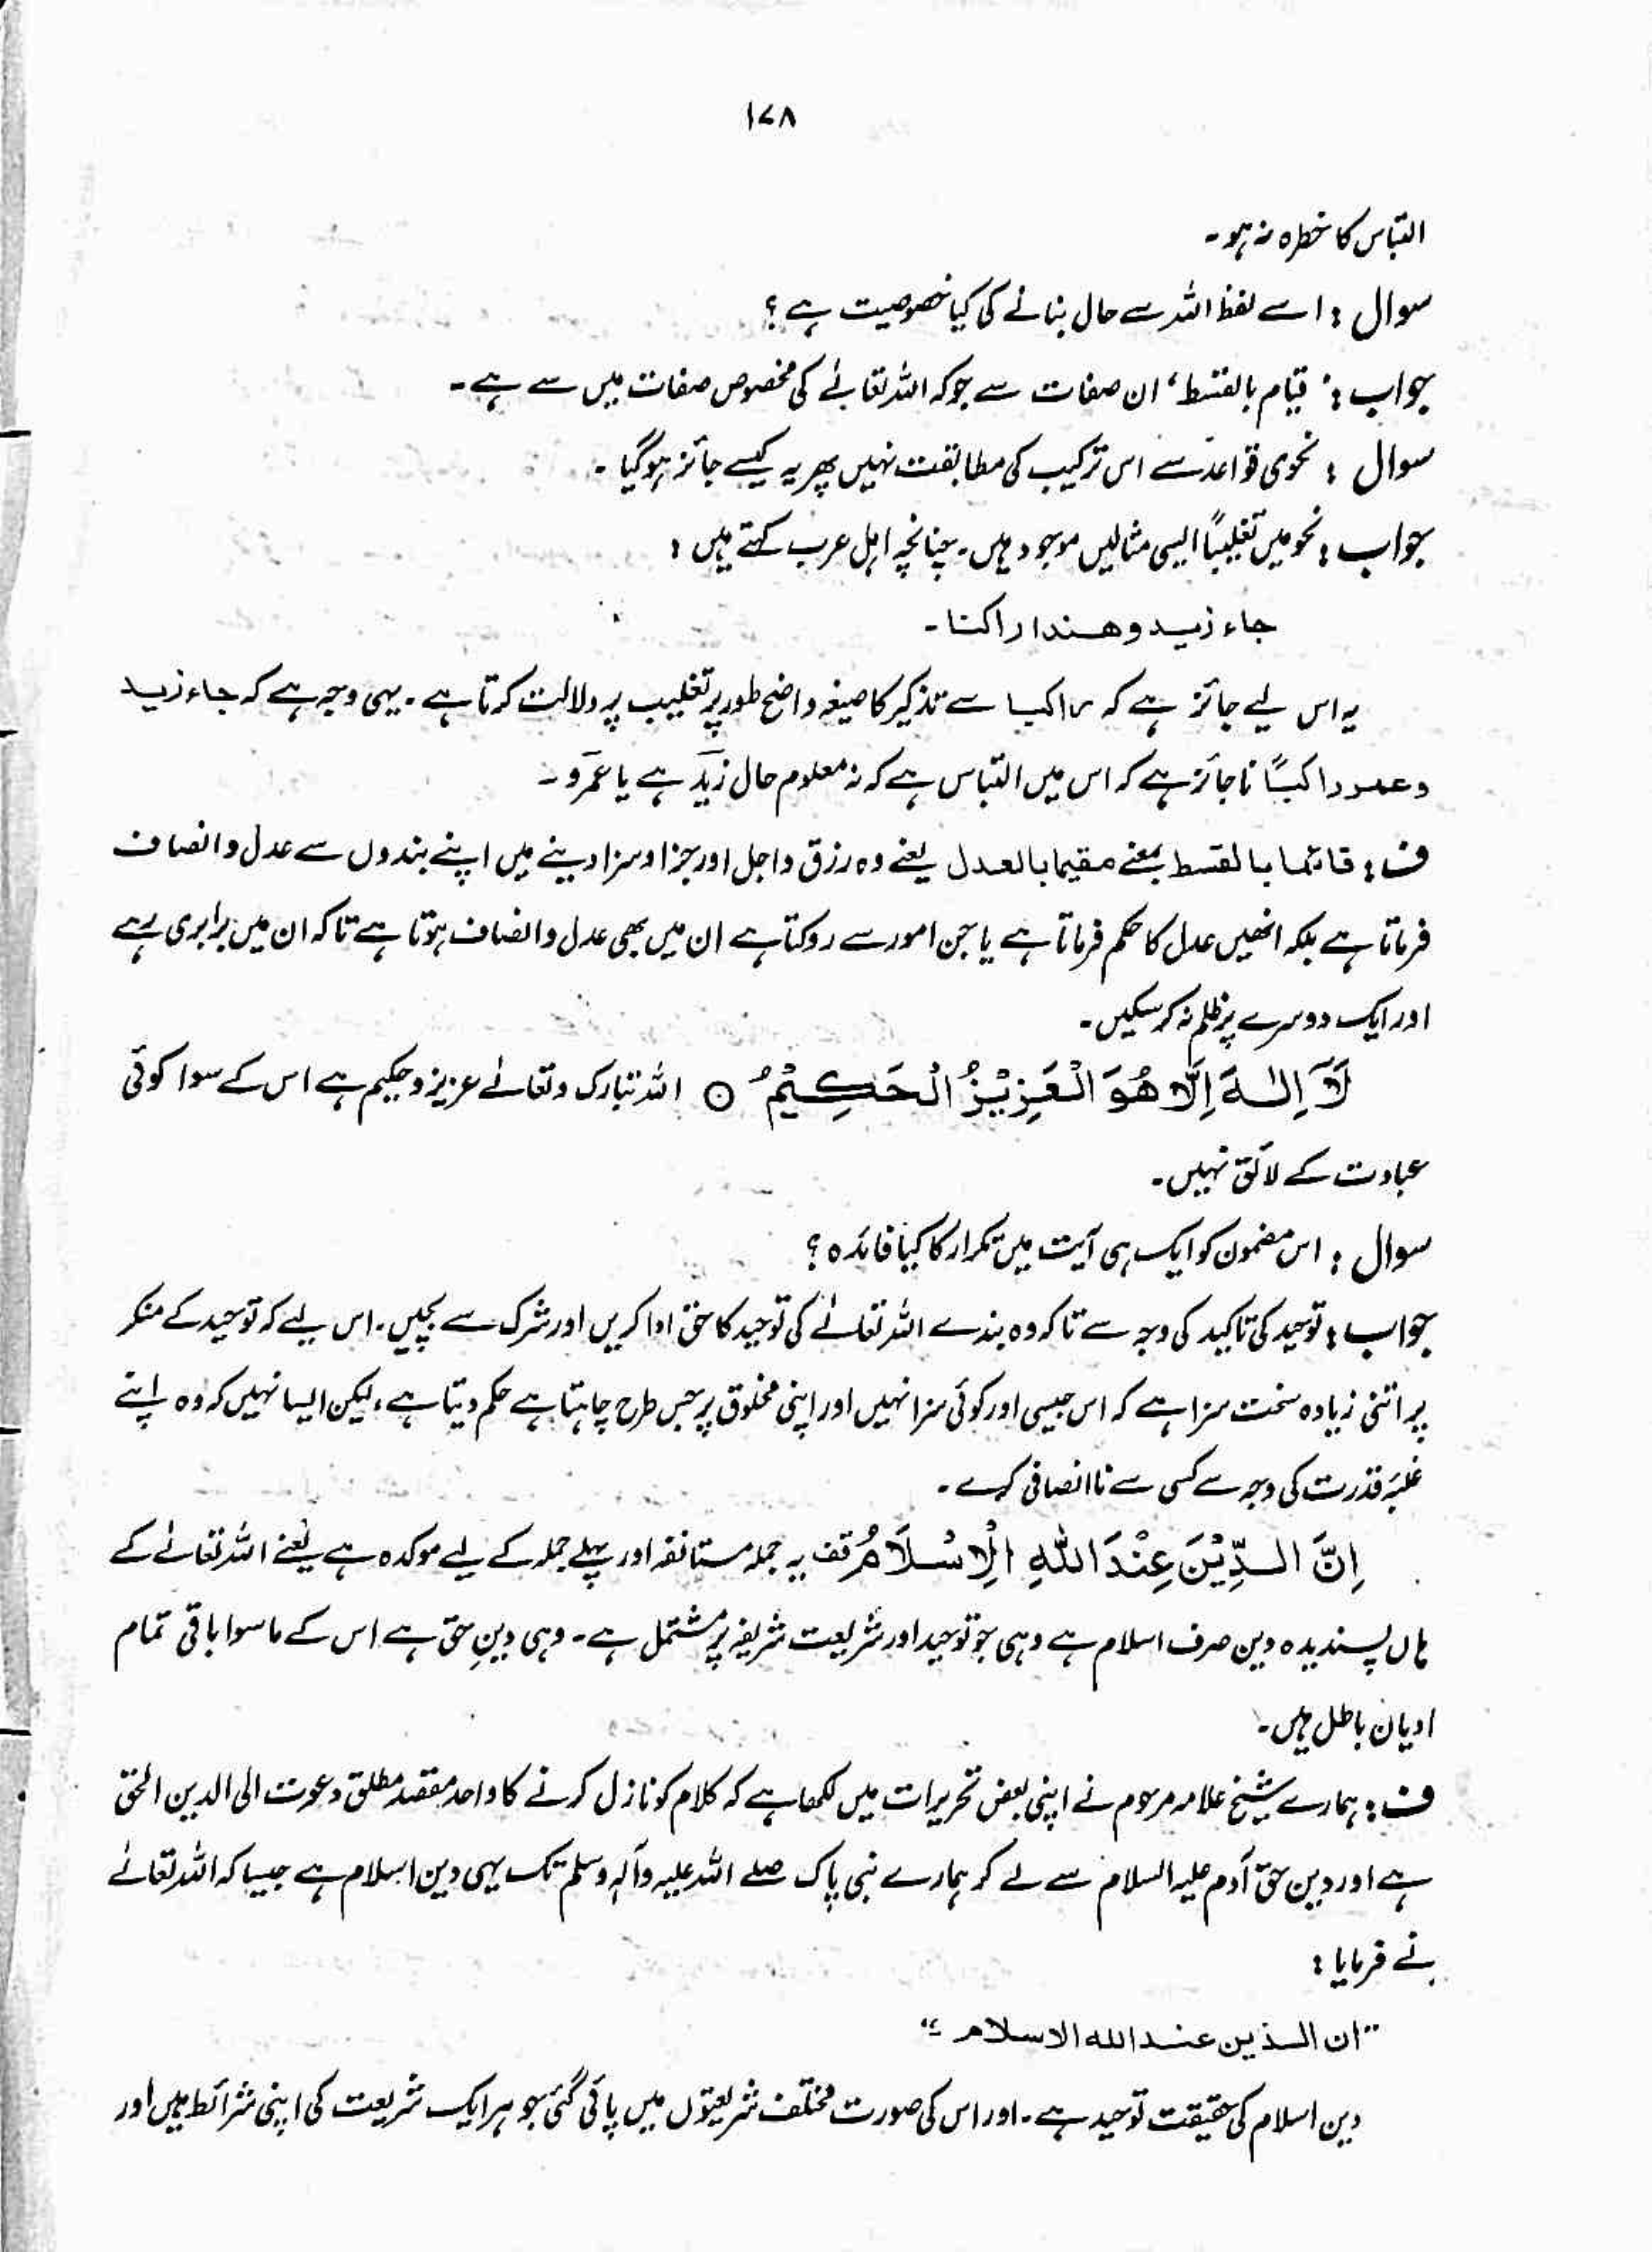 ۱۷۸
التباس کا خطرہ نہ ہو۔
سوال : اسے لفظ اللہ سے حال بنانے کی کیا خصوصیت ہے ؟
جواب : 'قیام بالقسط' ان صفات سے جو کہ اللہ تعالےٰ کی مخصوص صفات میں سے ہے۔
سوال : نحوی قواعد سے اس ترکیب کی مطابقت نہیں پھر یہ کیسے جائز ہوگیا ۔
جواب : نحو میں تغلیباً ایسی مثالیں موجود ہیں۔ چنانچہ اہل عرب کہتے ہیں :
جاء زید وھندا راکنا۔
یہ اس لیے جائز ہے کہ راکبا سے تذکیر کا صیغہ واضح طور پر تغلیب پر دلالت کرتا ہے ۔ یہی وجہ ہے کہ جاء زید
وعمر راکبًا ناجائز ہے کہ اس میں التباس ہے کہ نہ معلوم حال زید ہے یا عمرو ۔
ف : قائما بالقسط بمعنے مقیما بالعدل یعنے وہ رزق واجل اور جزا و سزا دینے میں اپنے بندوں سے عدل و انصاف
فرماتا ہے بلکہ انھیں عدل کا حکم فرماتا ہے یا جن امور سے روکتا ہے ان میں بھی عدل و انصاف ہوتا ہے تاکہ ان میں برابری رہے
اور ایک دوسرے پر ظلم نہ کرسکیں۔
لَآ اِلٰہَ اِلَّا ھُوَ الْعَزِیْزُ الْحَکِیْمُ ○ اللہ تبارک وتعالےٰ عزیز وحکیم ہے اس کے سوا کوئی
عبادت کے لائق نہیں۔
سوال : اس مضمون کو ایک ہی آیت میں تکرار کا کیا فائدہ ؟
جواب : توحید کی تاکید کی وجہ سے تاکہ وہ بندے اللہ تعالےٰ کی توحید کا حق ادا کریں اور شرک سے بچیں۔ اس لیے کہ توحید کے منکر
پر اتنی زیادہ سخت سزا ہے کہ اس جیسی اور کوئی سزا نہیں اور اپنی مخلوق پر جس طرح چاہتا ہے حکم دیتا ہے، لیکن ایسا نہیں کہ وہ اپنے
غلبۂ قدرت کی وجہ سے کسی سے ناانصافی کرے ۔
اِنَّ الدِّیْنَ عِنْدَ اللّٰہِ الْاِسْلَامُ قف یہ جملہ مستانفہ اور پہلے جملہ کے لیے موکدہ ہے یعنے اللہ تعالےٰ کے
ہاں پسندیدہ دین صرف اسلام ہے وہی جو توحید اور شریعت شریفہ پر مشتمل ہے۔ وہی دینِ حق ہے اس کے ماسوا باقی تمام
ادیان باطل ہیں۔
ف : ہمارے شیخ علامہ مرحوم نے اپنی بعض تحریرات میں لکھا ہے کہ کلام کو نازل کرنے کا واحد مقصد مطلق دعوت الی الدین الحق
ہے اور دین حق آدم علیہ السلام سے لے کر ہمارے نبی پاک صلے اللہ علیہ وآلہٖ وسلم تک یہی دین اسلام ہے جیسا کہ اللہ تعالےٰ
نے فرمایا :
"ان الذین عند اللہ الاسلام ؛"
دین اسلام کی حقیقت توحید ہے۔ اور اس کی صورت مختلف شریعتوں میں پائی گئی جو ہر ایک شریعت کی اپنی شرائط ہیں اور